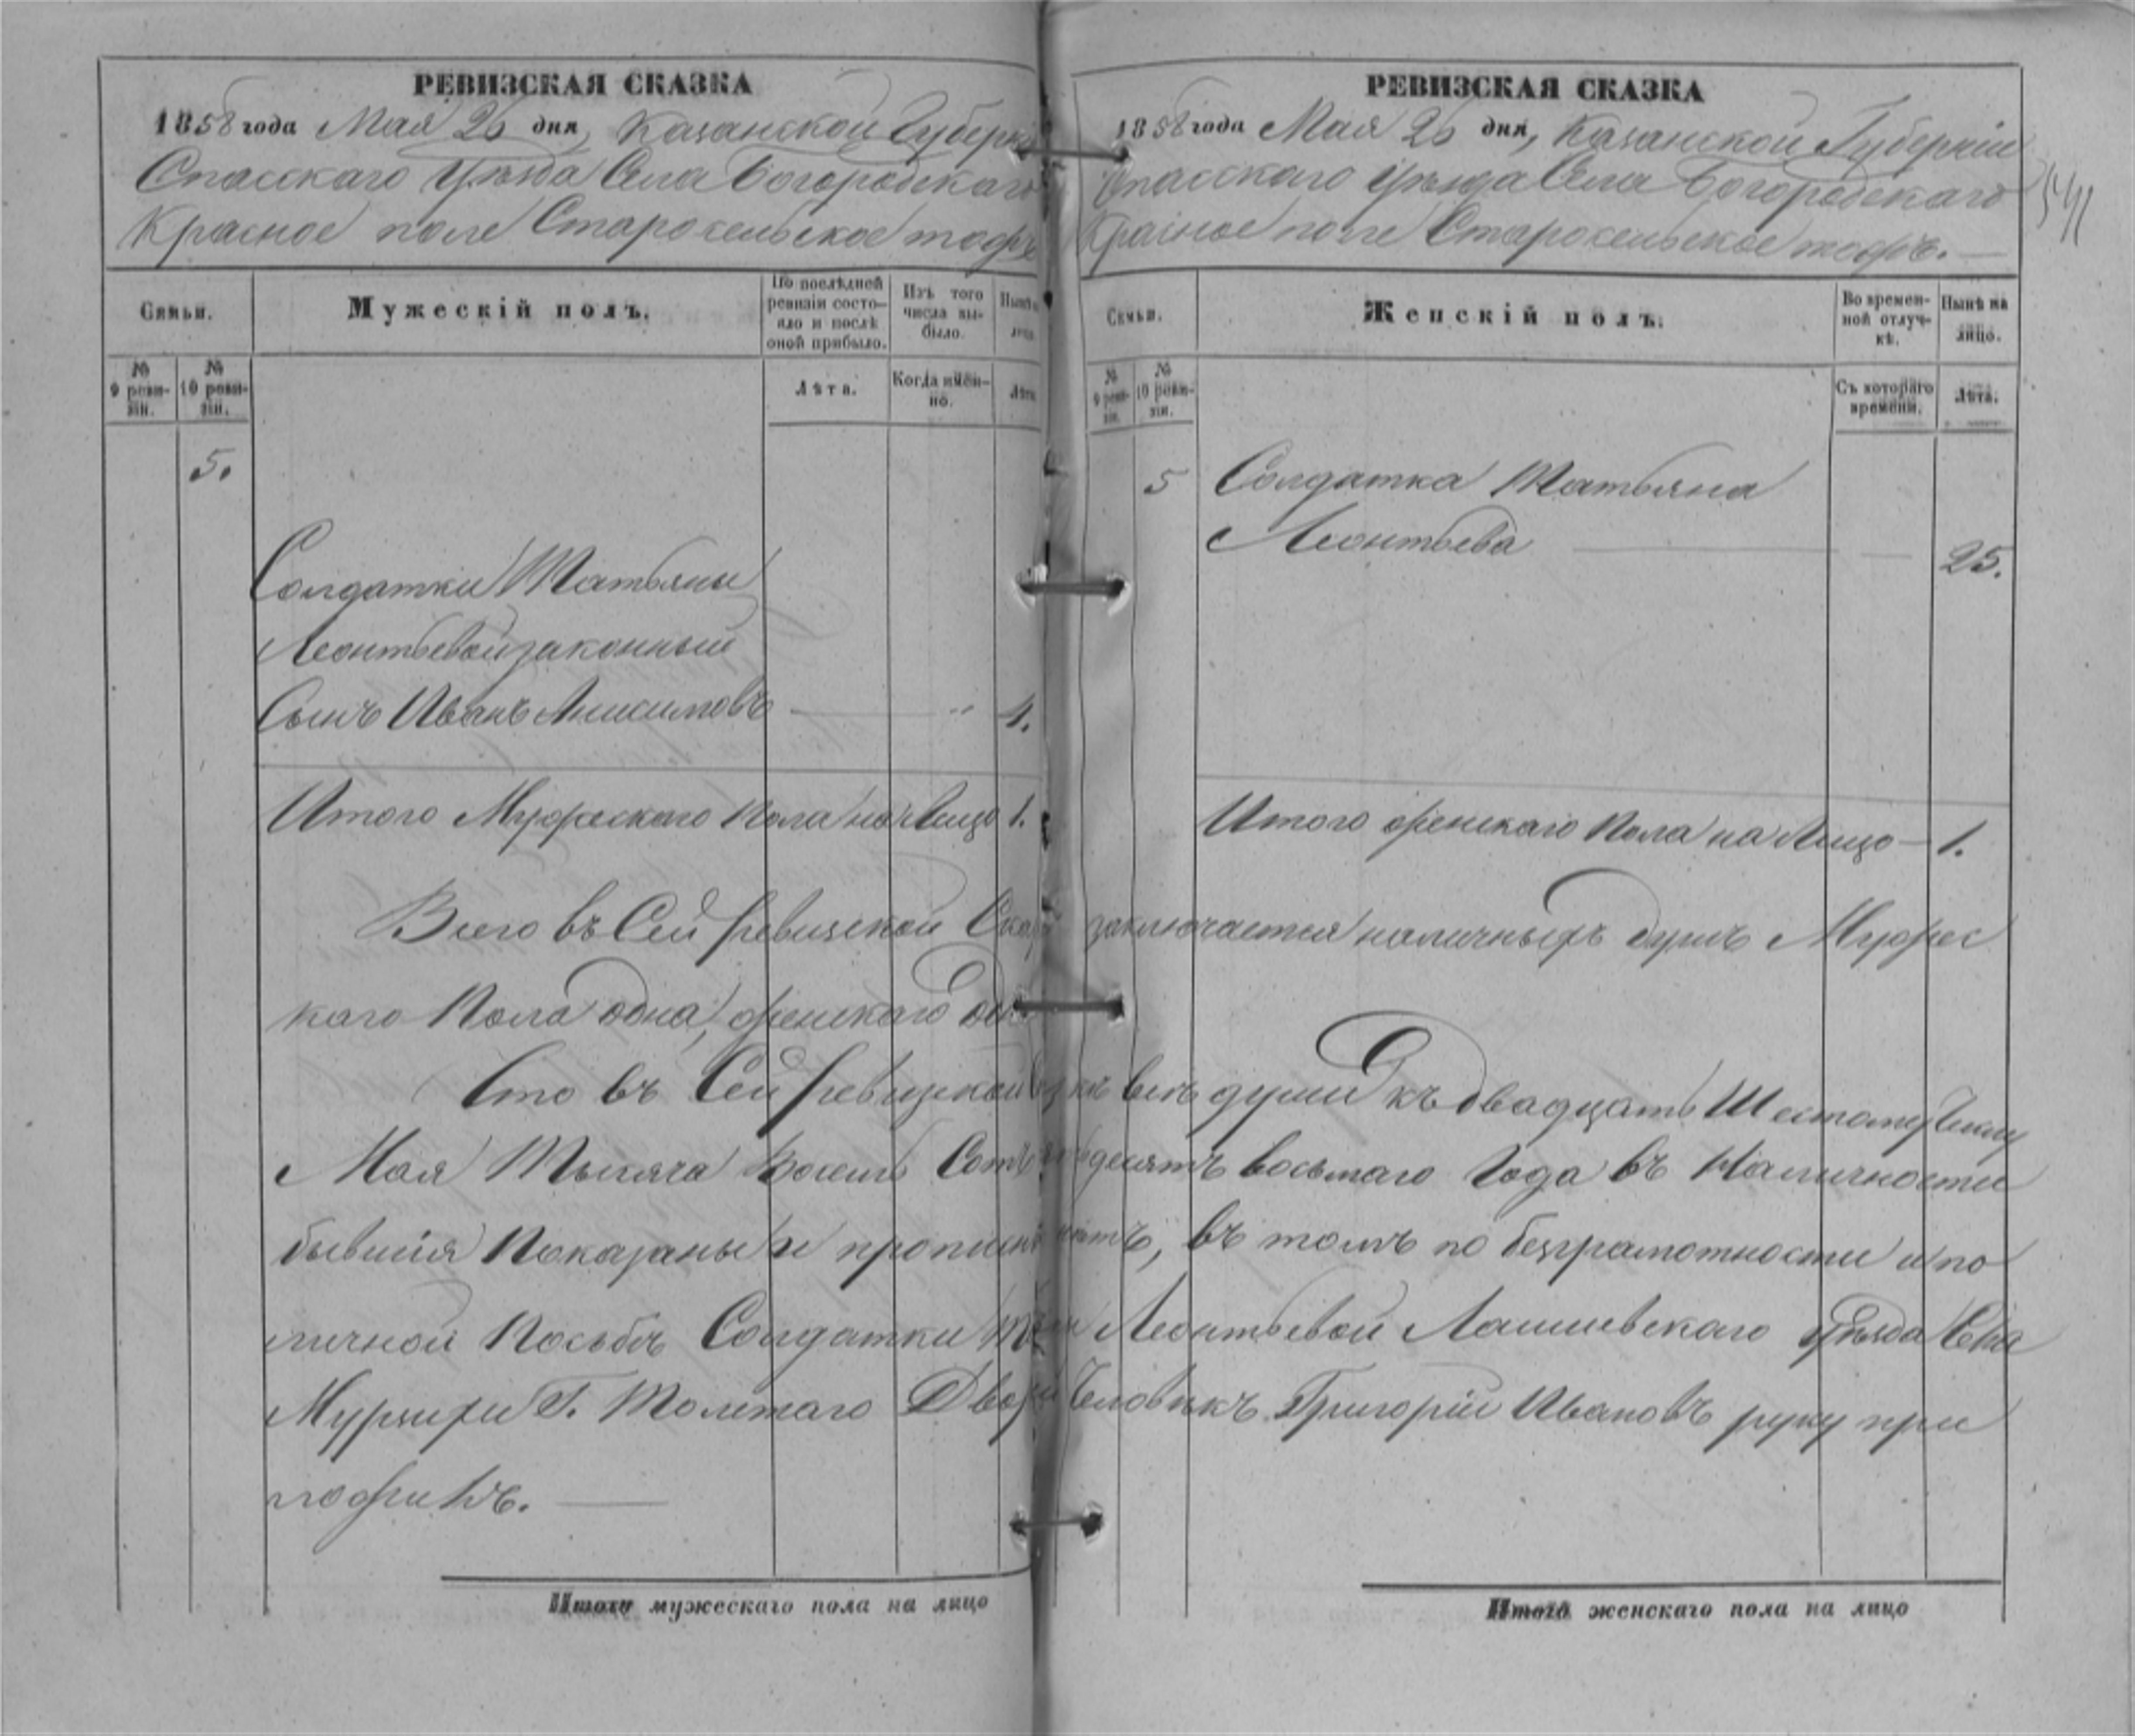 РЕВИЗСКАЯ СКАЗКА
1858 года Мая 26 дня, Казанской Губерні
Спасскаго Уѣзда Села Богородскаго
Красное поле Старосельское тожъ
Семьи.
Мужескій полъ.
По послѣдней ревизіи состояло и послѣ оной прибыло.
Изъ того числа выбыло.
Нынѣ
лицо
№ 9 ревизіи.
№ 10 ревизіи.
Лѣта.
Когда именно.
Лѣта
5.
Солдатки Татьяны
Леонтьевой законный
Сынъ Иванъ Анисимовъ — " 4.
Итого Мужескаго Пола на Лицо 1.
РЕВИЗСКАЯ СКАЗКА
1858 года Мая 26 дня, Казанской Губерніи
Спасскаго Уѣзда Села Богородскаго
Красное поле Старосельское тожъ. —
Семьи.
Женскій полъ.
Во временной отлучкѣ.
Нынѣ на лицо.
№ 9 ревизіи.
№ 10 ревизіи.
Съ котораго времени.
Лѣта.
5 Солдатка Татьяна
Леонтьева — — 25.
Итого женскаго Пола на Лицо — 1.
Всего въ Сей Ревизской Ска заключается наличныхъ душъ Мужес
каго Пола одна, женскаго одн
Что въ Сей Ревизской всѣ души къ двадцать Шестому Числу
Мая Тысяча Восемь Сотъ десятъ восьмаго Года въ Наличности
бывшія Показаны и пропи нѣтъ, въ томъ по безграмотности и по
личной Прозьбѣ Солдатки Леонтьевой Лаишевскаго Уѣзда Села
Мурзихи Г. Толстаго Двор Человѣкъ Григорій Ивановъ руку при
ложилъ. —
Итого мужескаго пола на лицо
Итого женскаго пола на лицо